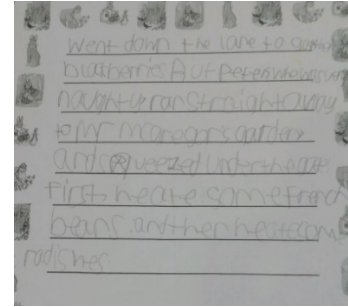 went down the lane to gather
blackberries But peter who was very
naughty ran straight away
to Mr mcgregors garden
and squeezed under the gate
first he ate some french
beans and then he ate some
radishes